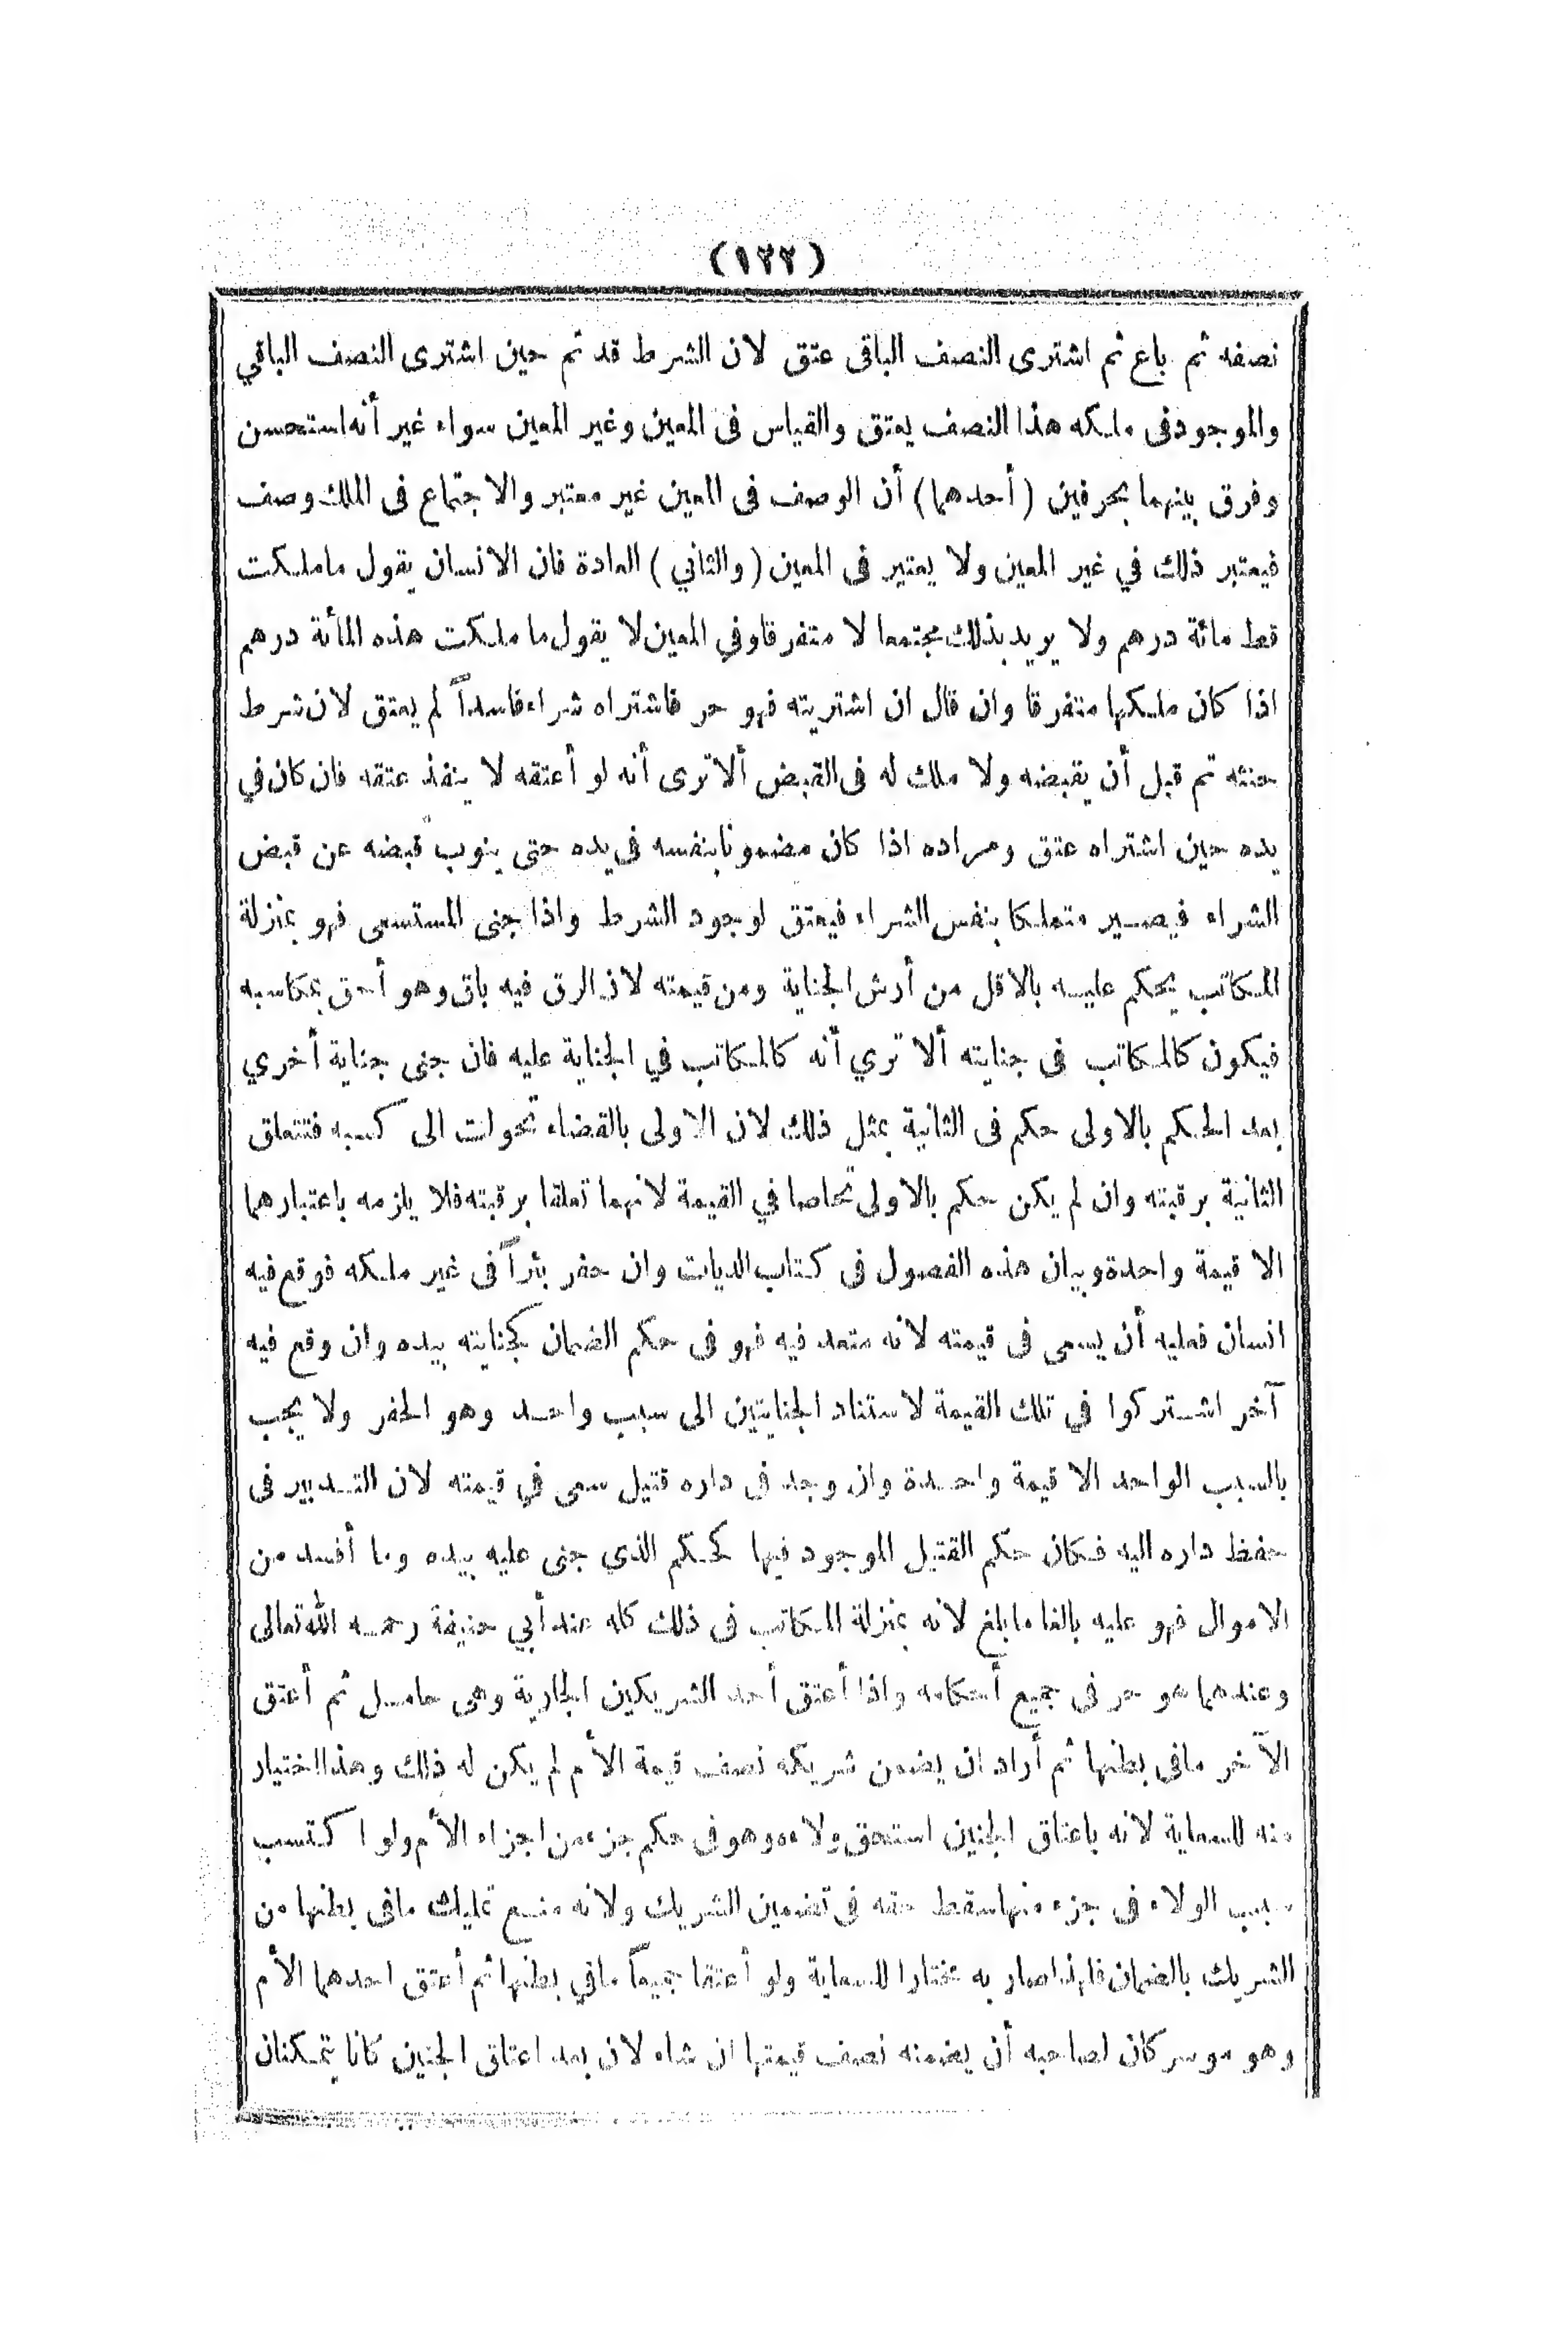 (١٢٢)
نصفه ثم باع ثم اشترى النصف الباقى عتق لان الشرط قد تم حين اشترى النصف الباقي
والموجود فى ملكه هذا النصف يعتق والقياس فى المعين وغير المعين سواء غير أنه استحسن
وفرق بينهما بحرفين (أحدهما) أن الوصف فى المعين غير معتبر والاجتماع فى الملك وصف
فيعتبر ذلك في غير المعين ولا يعتبر فى المعين (والثاني) العادة فان الانسان يقول ماملكت
قط مائة درهم ولا يريد بذلك مجتمعا لا متفرقا وفي المعين لا يقول ما ملكت هذه المأئة درهم
اذا كان ملكها متفرقا وان قال ان اشتريته فهو حر فاشتراه شراء فاسداً لم يعتق لان شرط
حنثه تم قبل أن يقبضه ولا ملك له فى القبض ألا ترى أنه لو أعتقه لا ينفذ عتقه فان كان في
يده حين اشتراه عتق ومراده اذا كان مضمونا بنفسه فى يده حتى ينوب قبضه عن قبض
الشراء فيصير متملكا بنفس الشراء فيعتق لوجود الشرط واذا جنى المستسعى فهو بمنزلة
المكاتب يحكم عليه بالاقل من أرش الجناية ومن قيمته لان الرق فيه باق وهو أحق بمكاسبه
فيكون كالمكاتب فى جنايته ألا تري أنه كالمكاتب في الجناية عليه فان جنى جناية أخري
بعد الحكم بالاولى حكم فى الثانية بمثل ذلك لان الاولى بالقضاء تحولت الى كسبه فتتعلق
الثانية برقبته وان لم يكن حكم بالاولى تحاصا في القيمة لانهما تعلقا برقبته فلا يلزمه باعتبارهما
الا قيمة واحدة وبيان هذه الفصول فى كتاب الديات وان حفر بئراً فى غير ملكه فوقع فيه
انسان فعليه أن يسعى فى قيمته لانه متعد فيه فهو فى حكم الضمان كجنايته بيده وان وقع فيه
آخر اشتركوا في تلك القيمة لاستناد الجنايتين الى سبب واحد وهو الحفر ولا يجب
بالسبب الواحد الا قيمة واحدة وان وجد فى داره قتيل سعى في قيمته لان التدبير فى
حفظ داره اليه فكان حكم القتيل الموجود فيها كحكم الذى جنى عليه بيده وما أفسد من
الاموال فهو عليه بالغا ما بلغ لانه بمنزلة المكاتب فى ذلك كله عند أبي حنيفة رحمه الله تعالى
وعندهما هو حر فى جميع أحكامه واذا أعتق أحد الشريكين الجارية وهى حامل ثم أعتق
الآخر مافى بطنها ثم أراد ان يضمن شريكه نصف قيمة الأم لم يكن له ذلك وهذا اختيار
منه للسعاية لانه باعتاق الجنين استحق ولاءه وهو فى حكم جزء من اجزاء الأم ولو اكتسب
سبب الولاء فى جزء منها سقط حقه فى تضمين الشريك ولانه منع تمليك مافى بطنها من
الشريك بالضمان فلهذا صار به مختارا للسعاية ولو أعتقا جميعاً مافي بطنها ثم أعتق احدهما الأم
وهو موسر كان لصاحبه أن يضمنه نصف قيمتها ان شاء لان بعد اعتاق الجنين كانا يتمكنان